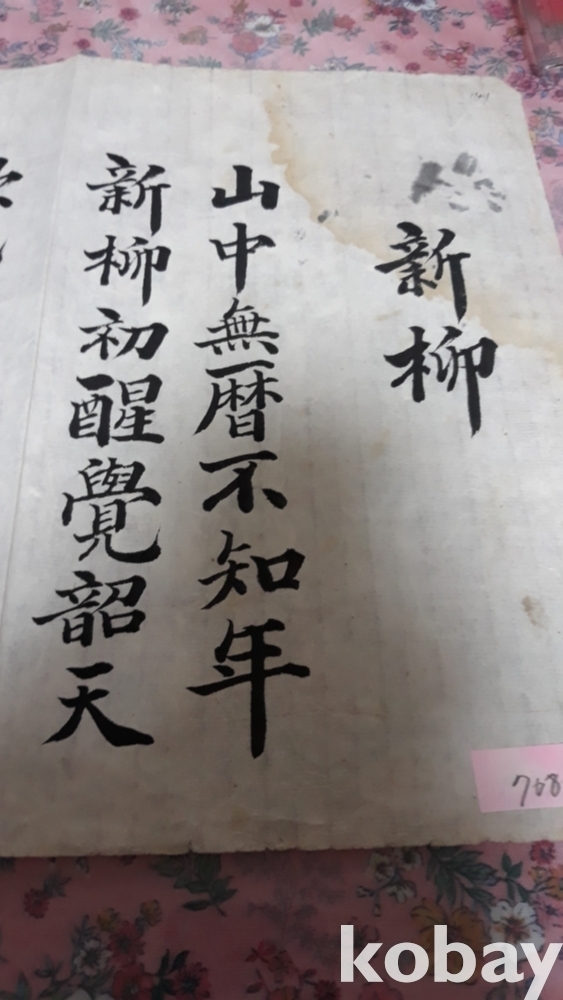 新柳
山中無暦不知年
新柳初醒覺韶天
768
kobay